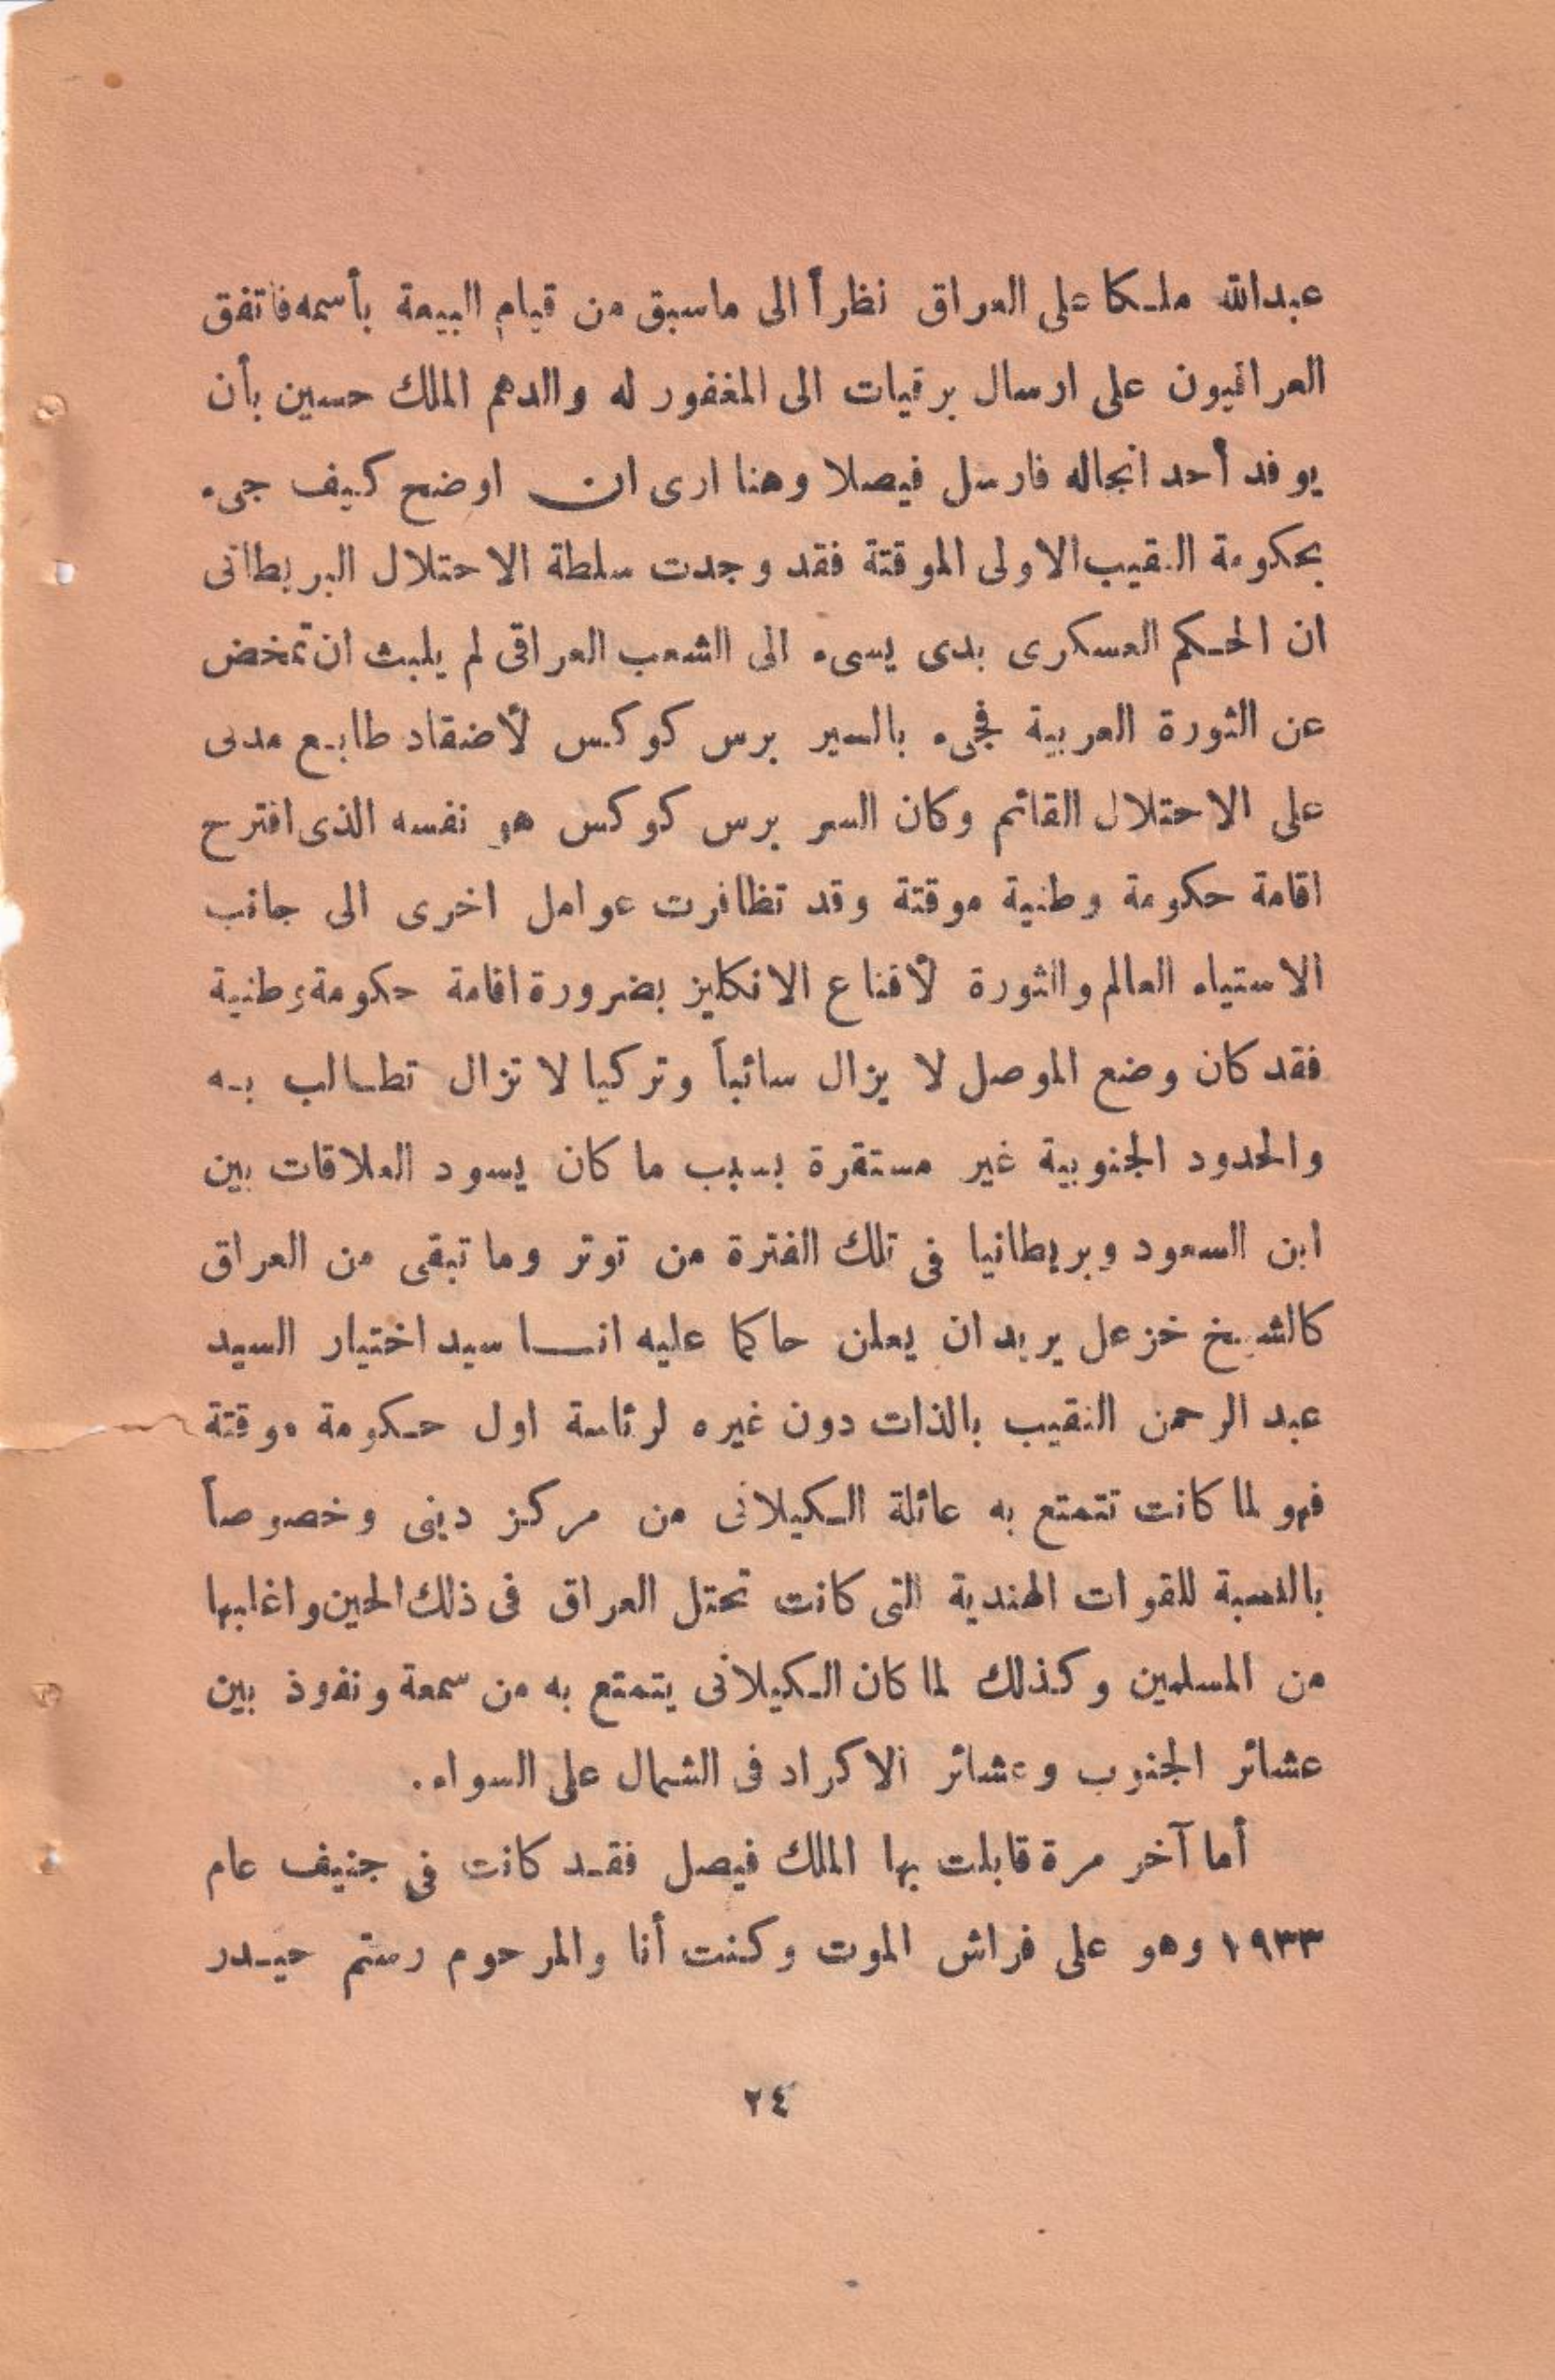 عبدالله ملكا على العراق نظراً الى ماسبق من قيام البيعة بأسمه فاتفق
العراقيون على ارسال برقيات الى المغفور له والدهم الملك حسين بأن
يوفد أحد انجاله فارسل فيصلا وهنا ارى ان اوضح كيف جىء
بحكومة النقيب الاولى الموقتة فقد وجدت سلطة الاحتلال البريطانى
ان الحكم العسكرى بدى يسىء الى الشعب العراقى لم يلبث ان تمخض
عن الثورة العربية فجىء بالسير برس كوكس لأضفاء طابع مدنى
على الاحتلال القائم وكان السر برس كوكس هو نفسه الذى اقترح
اقامة حكومة وطنية موقتة وقد تظافرت عوامل اخرى الى جانب
الاستياء العالم والثورة لأقناع الانكليز بضرورة اقامة حكومة وطنية
فقد كان وضع الموصل لا يزال سائباً وتركيا لا تزال تطالب به
والحدود الجنوبية غير مستقرة بسبب ما كان يسود العلاقات بين
ابن السعود وبريطانيا فى تلك الفترة من توتر وما تبقى من العراق
كالشيخ خزعل يريد ان يعلن حاكما عليه انا سيد اختيار السيد
عبد الرحمن النقيب بالذات دون غيره لرئاسة اول حكومة موقتة
فهو لما كانت تتمتع به عائلة الكيلانى من مركز دينى وخصوصاً
بالنسبة للقوات الهندية التى كانت تحتل العراق فى ذلك الحين واغلبها
من المسلمين وكذلك لما كان الكيلانى يتمتع به من سمعة ونفوذ بين
عشائر الجنوب وعشائر الاكراد فى الشمال على السواء.
أما آخر مرة قابلت بها الملك فيصل فقد كانت فى جنيف عام
١٩٣٣ وهو على فراش الموت وكنت أنا والمرحوم رستم حيدر
٢٤